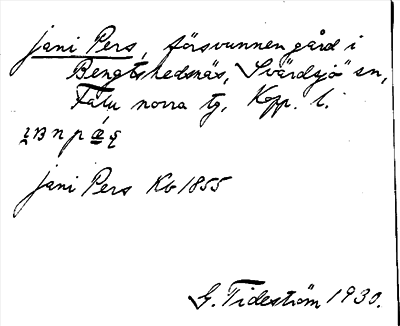 Jani Pers, försvunnen gård i
Bengtshedsnäs, Svärdsjö sn,
Falu norra tg, Kopp. l.
Jani Pers Kb 1855
G. Tideström 1930.